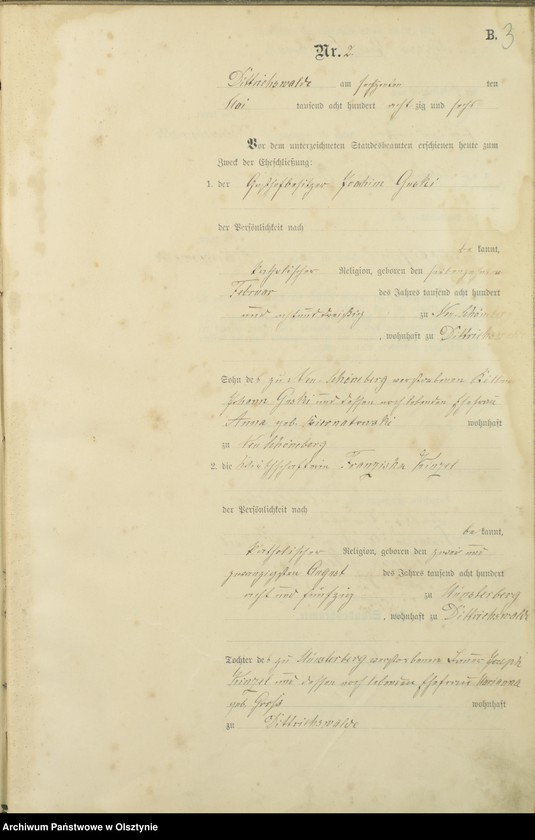 B. 3
Nr. 2
Dittrichswalde am sechzehnten ten
Mai tausend acht hundert acht zig und sechs
Vor dem unterzeichneten Standesbeamten erschienen heute zum
Zweck der Eheschließung:
1. der Gasthofbesitzer Joachim
der Persönlichkeit nach
be kannt,
katholischer Religion, geboren den siebenzehnten
Februar des Jahres tausend acht hundert
und acht und dreißig zu Neu Schöneberg
, wohnhaft zu Dittrichswalde
Sohn des zu Neu-Schöneberg verstorbenen
Johann und dessen noch lebenden Ehefrau
Anna geb. Biernatowski wohnhaft
zu Neu Schöneberg
2. die Franziska Kinzel
der Persönlichkeit nach
be kannt,
katholischer Religion, geboren den zwei und
zwanzigsten August des Jahres tausend acht hundert
acht und fünfzig zu Münsterberg
, wohnhaft zu Dittrichswalde
Tochter des zu Münsterberg verstorbenen Joseph
Kinzel und dessen noch lebenden Ehefrau Marianna
geb. Groß wohnhaft
zu Dittrichswalde
Archiwum Państwowe w Olsztynie